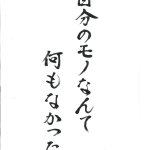 自分のモノなんて
何もなかった